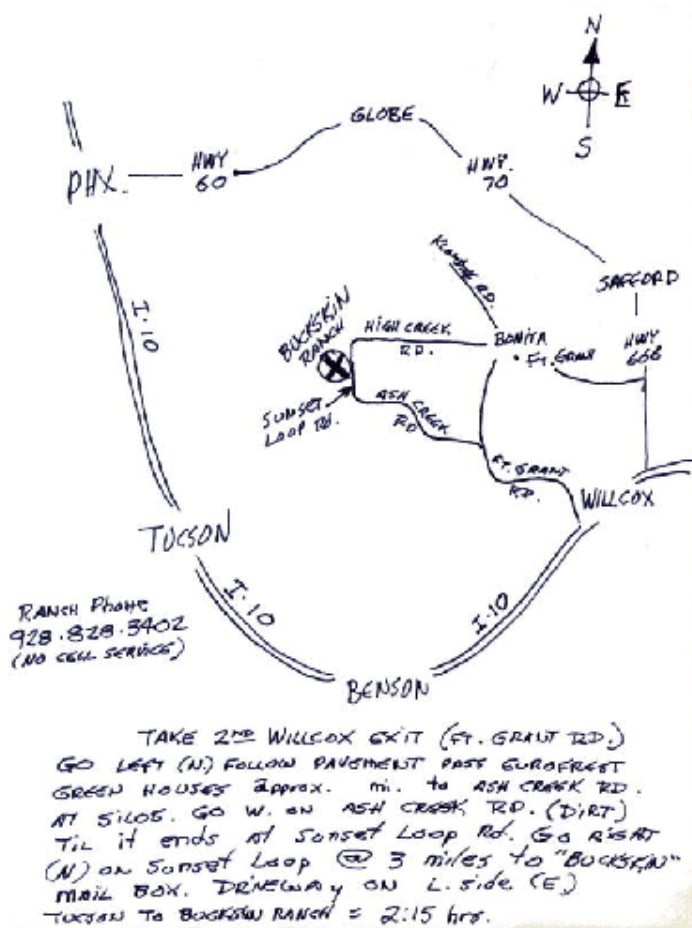 N
W E
S
GLOBE
PHX.
HWY
60
HWY.
70
KLONDYKE RD.
SAFFORD
I.10
BUCKSKIN
RANCH
HIGH CREEK
RD.
BONITA
FT. GRANT
HWY
666
SUNSET
LOOP RD.
ASH CREEK
RD
FT. GRANT
RD.
WILLCOX
TUCSON
I.10
I.10
RANCH PHONE
928.828.3402
(NO CELL SERVICE)
BENSON
TAKE 2ND WILLCOX EXIT (FT. GRANT RD.)
GO LEFT (N) FOLLOW PAVEMENT PAST EUROFREST
GREEN HOUSES approx. mi. to ASH CREEK RD.
AT SILOS. GO W. ON ASH CREEK RD. (DIRT)
TIL it ends AT Sunset Loop Rd. GO RIGHT
(N) on Sunset Loop @ 3 miles to "BUCKSKIN"
MAIL BOX. DRIVEWAY ON L. side (E)
TUCSON TO BUCKSKIN RANCH = 2:15 hrs.